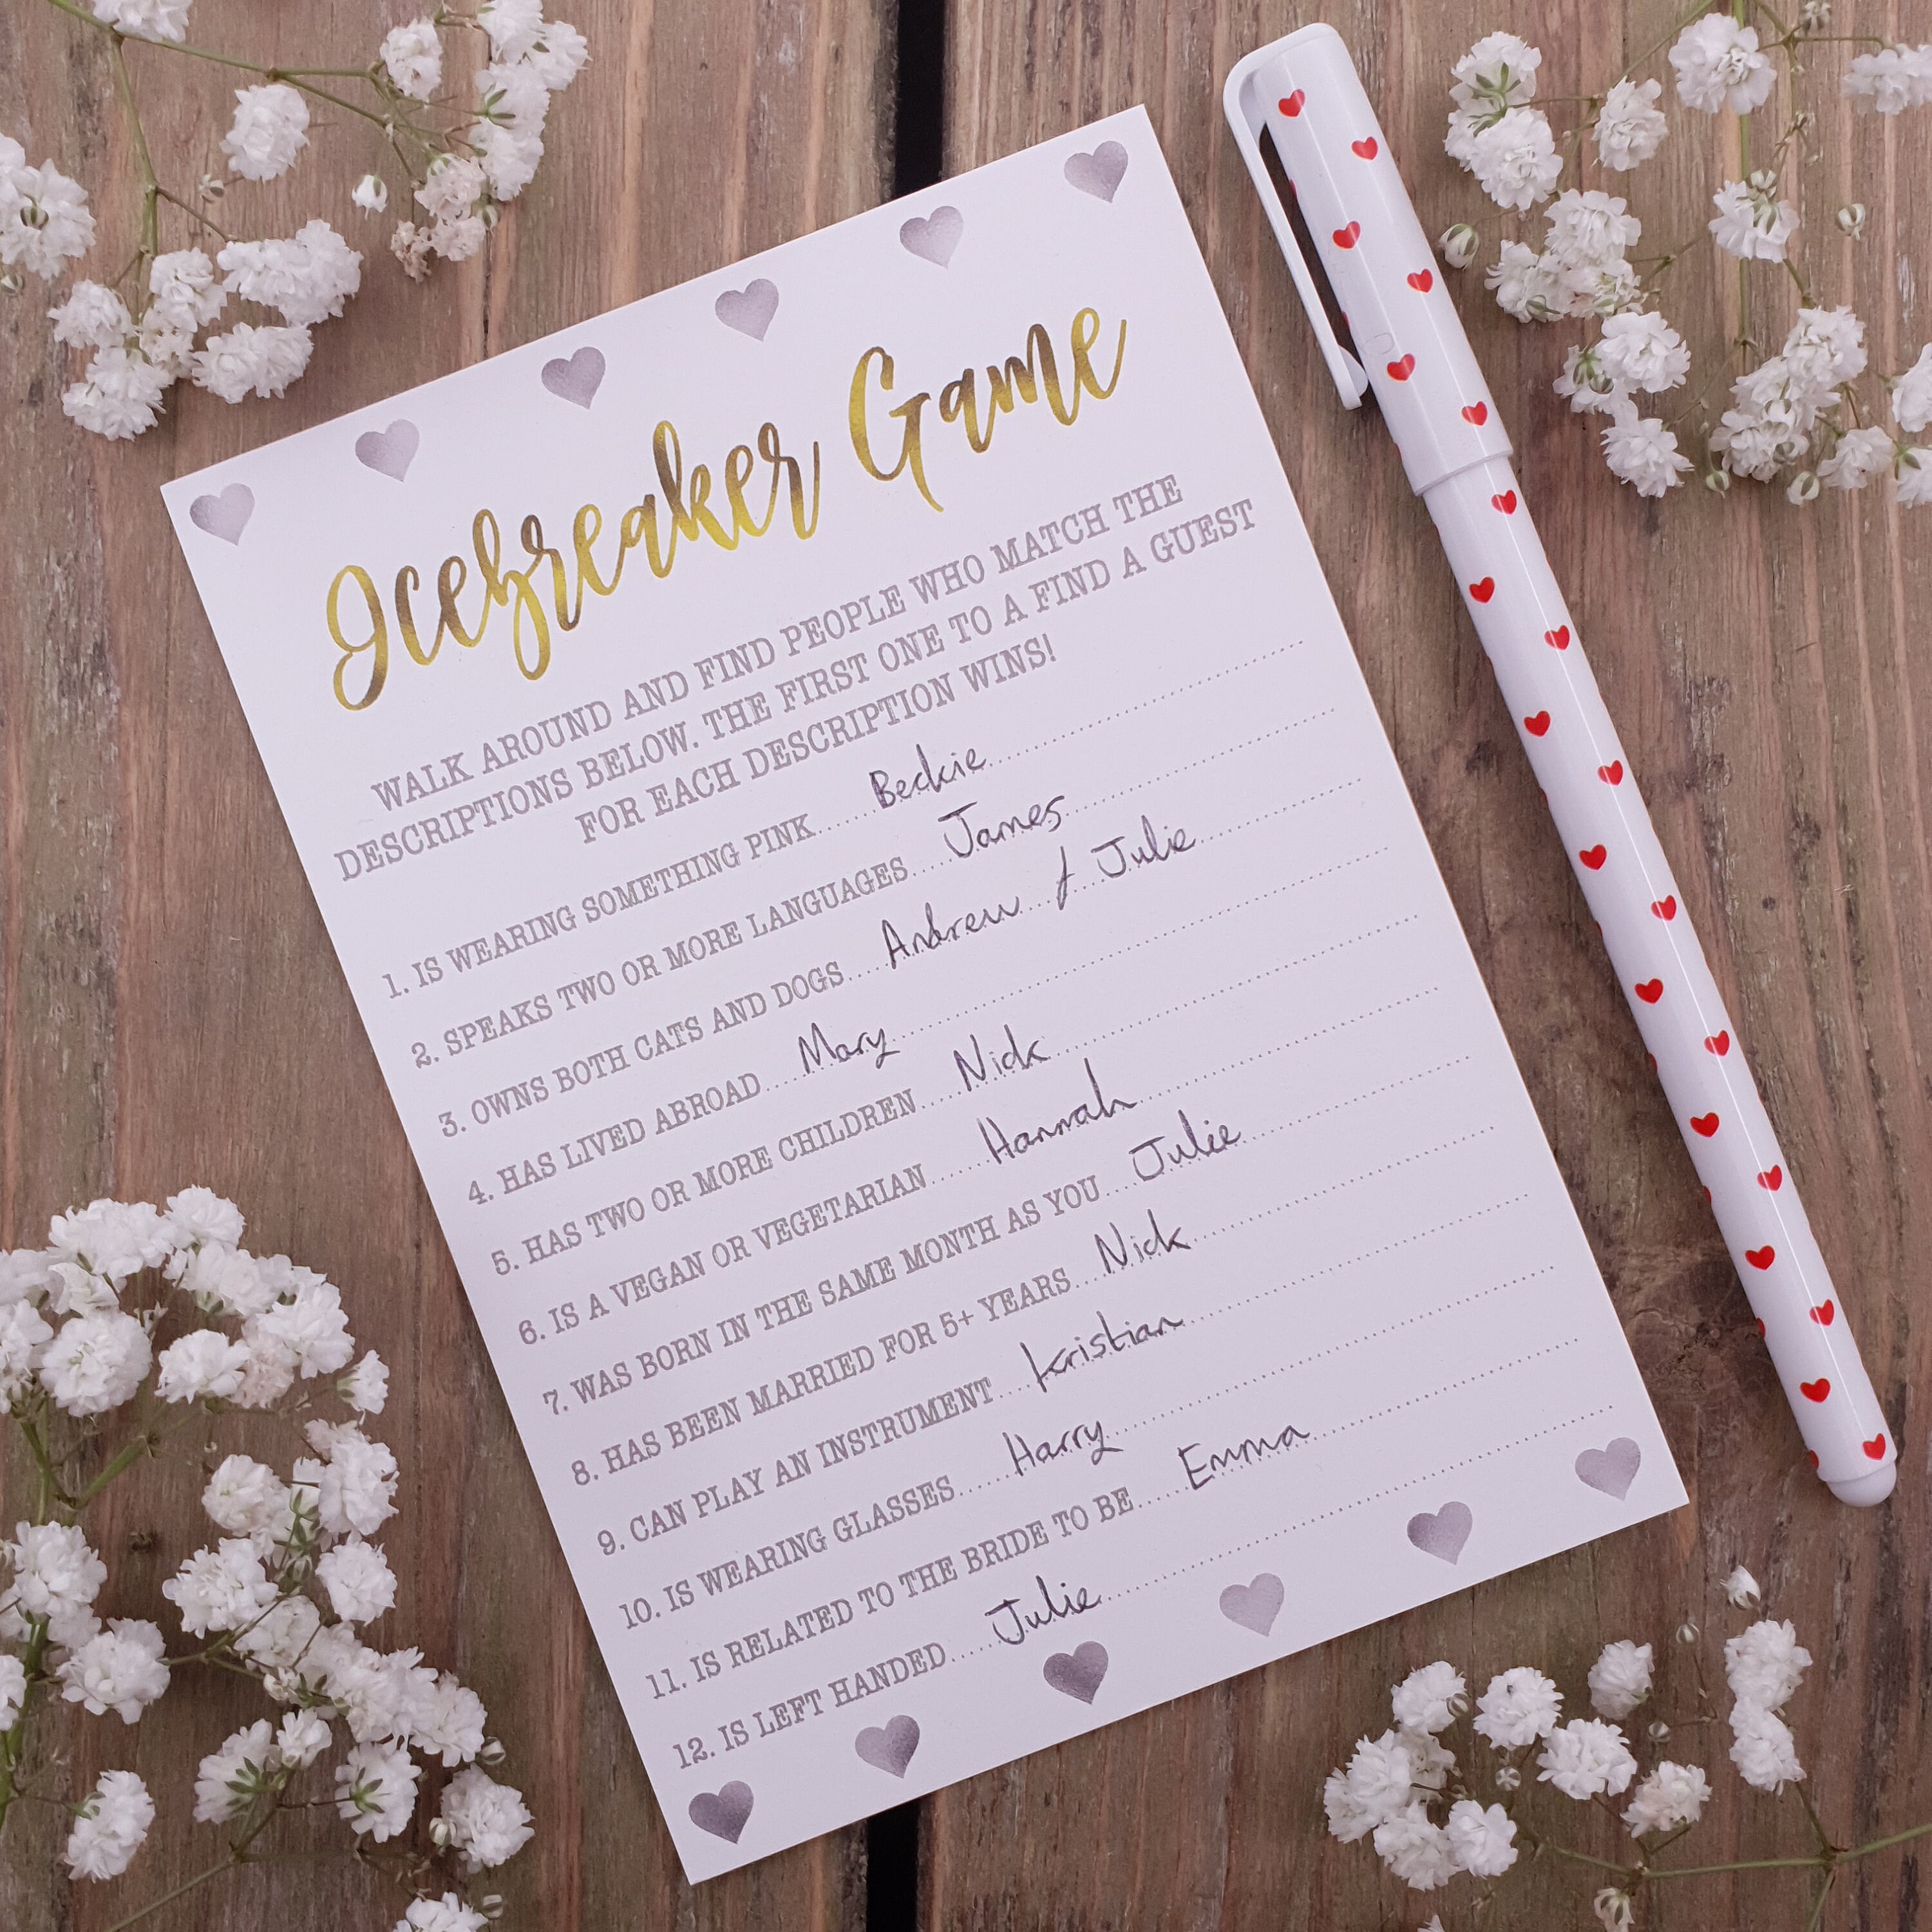 Icebreaker Game
WALK AROUND AND FIND PEOPLE WHO MATCH THE
DESCRIPTIONS BELOW. THE FIRST ONE TO A FIND A GUEST
FOR EACH DESCRIPTION WINS!
1. IS WEARING SOMETHING PINK..... Beckie
2. SPEAKS TWO OR MORE LANGUAGES.... James
3. OWNS BOTH CATS AND DOGS.... Andrew & Julie
4. HAS LIVED ABROAD.... Mary
5. HAS TWO OR MORE CHILDREN..... Nick
6. IS A VEGAN OR VEGETARIAN..... Hannah
7. WAS BORN IN THE SAME MONTH AS YOU.... Julie
8. HAS BEEN MARRIED FOR 5+ YEARS.... Nick
9. CAN PLAY AN INSTRUMENT.... Kristian
10. IS WEARING GLASSES..... Harry
11. IS RELATED TO THE BRIDE TO BE..... Emma
12. IS LEFT HANDED..... Julie